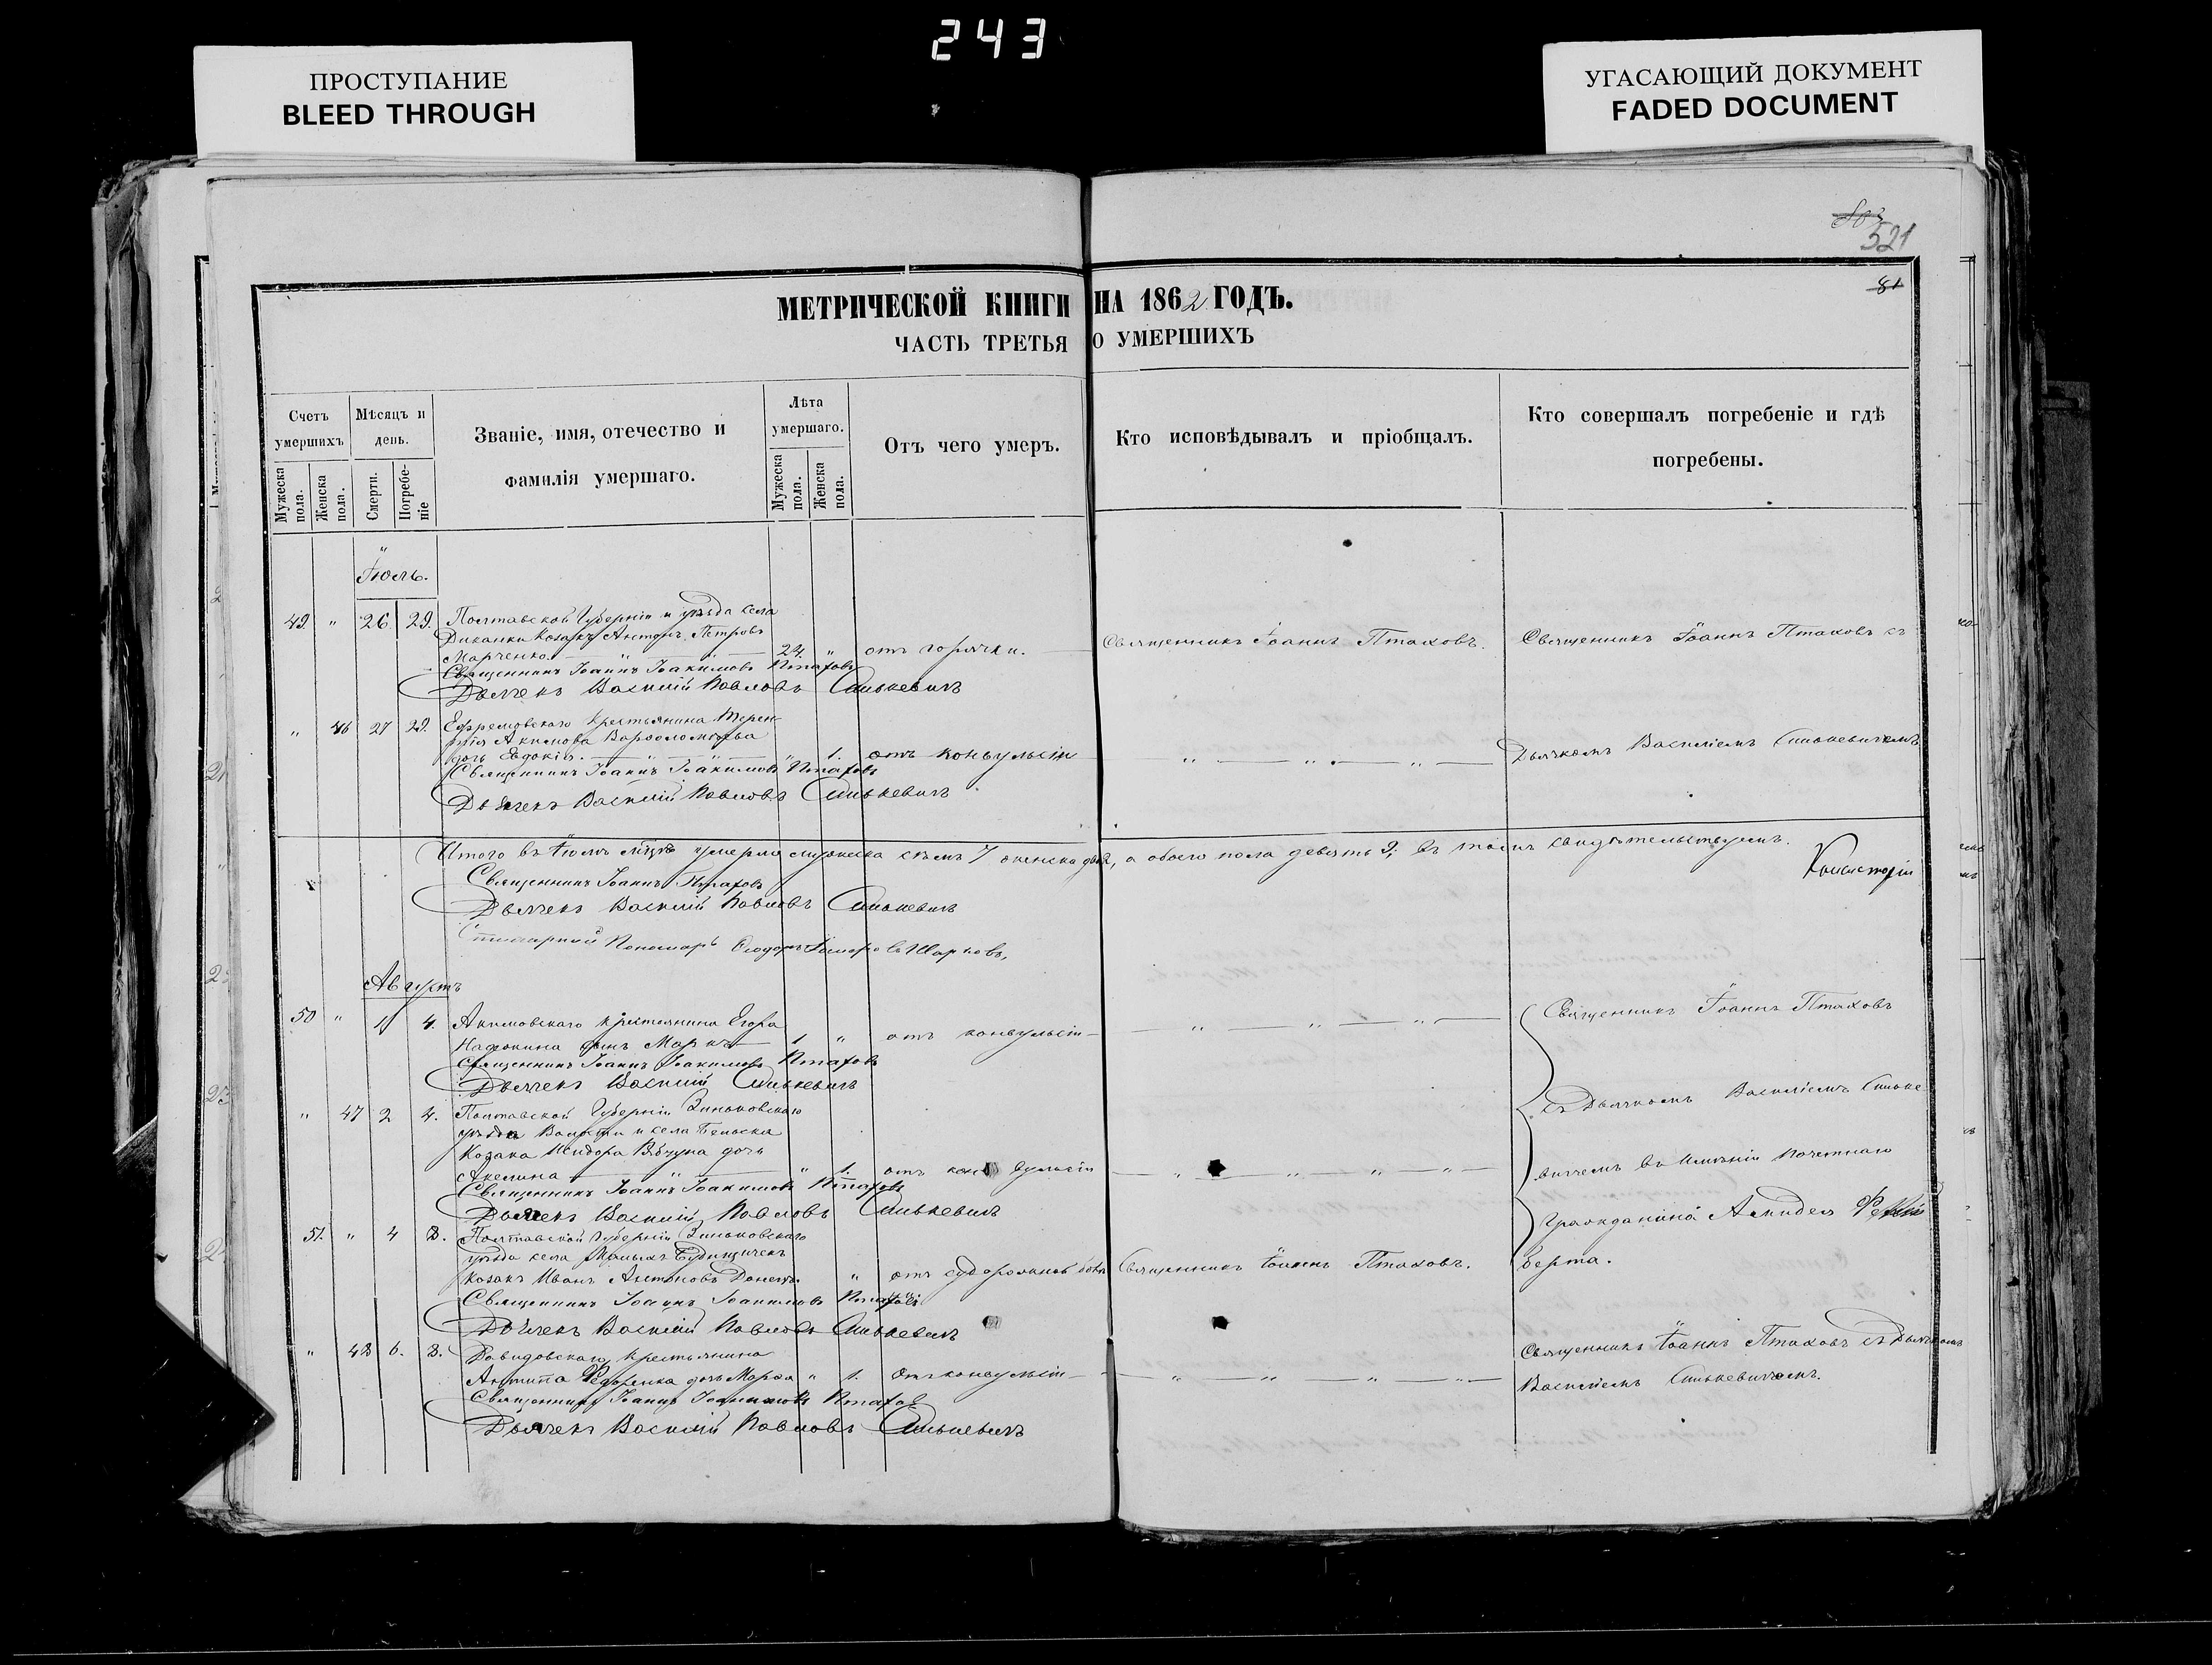 243
ПРОСТУПАНИЕ
BLEED THROUGH
УГАСАЮЩИЙ ДОКУМЕНТ
FADED DOCUMENT
521
81
МЕТРИЧЕСКОЙ КНИГИ НА 1862 ГОДЪ.
ЧАСТЬ ТРЕТЬЯ О УМЕРШИХЪ
Счетъ умершихъ
Мужеска пола.
Женска пола.
Мѣсяцъ и день.
Смерти.
Погребеніе
Званіе, имя, отечество и фамилія умершаго.
Лѣта умершаго.
Мужеска пола.
Женска пола.
Отъ чего умеръ.
Кто исповѣдывалъ и пріобщалъ.
Кто совершалъ погребеніе и гдѣ погребены.
Іюль.
49. " 26. 29. Полтавской Губерніи и уѣзда села
Диканки Козакъ Антонъ Петровъ
Марченко. 24. " отъ горячки. Священникъ Іоаннъ Птаховъ. Священникъ Іоаннъ Птаховъ съ
Священникъ Іоаннъ Іоакимовъ Птаховъ
Дьячекъ Василій Павловъ Синькевичъ
" 46 27 29. Ефремовскаго крестьянина Терен-
тія Акимова Варфоломѣева
дочь Евдокія. " 1. отъ конвульсіи " " " Дьячкомъ Василіемъ Синькевичемъ
Священникъ Іоаннъ Іоакимовъ Птаховъ
Дьячекъ Василій Павловъ Синькевичъ
Итого въ Іюлѣ мѣцѣ умерло мужеска седмь 7 женска два, а обоего пола девять 9; въ томъ свидѣтельствуемъ.
Священникъ Іоаннъ Птаховъ
Консисторіи
Дьячекъ Василій Павловъ Синькевичъ
Пономарь Ѳеодоръ
Августъ
50 " 1 4. Акимовскаго крестьянина Егора
сынъ Маркъ 1 " отъ конвульсіи " " " Священникъ Іоаннъ Птаховъ
Священникъ Іоаннъ Іоакимовъ Птаховъ
Дьячекъ Василій Синькевичъ
съ Дьячкомъ Василіемъ Синьке
" 47 2 4. Полтавской Губерніи Зиньковскаго
уѣзда Волости и села Бельска
Козака Исидора дочь
Акелина " " 1. отъ конвульсіи " " " " вичемъ въ имѣніи почетнаго
Священникъ Іоаннъ Іоакимовъ Птаховъ
Дьячекъ Василій Павловъ Синькевичъ
гражданина
51. " 4 8. Полтавской Губерніи Зиньковскаго
уѣзда села Малыхъ Будищичекъ
козакъ Иванъ Антоновъ " отъ Священникъ Іоаннъ Птаховъ. берта.
Священникъ Іоаннъ Іоакимовъ Птаховъ
Дьячекъ Василій Павловъ Синькевичъ
" 48 6. 8. Давидовскаго крестьянина
Антипа дочь Марфа " 1. отъ конвульсіи " " " " Священникъ Іоаннъ Птаховъ съ Дьячкомъ
Василіемъ Синькевичемъ.
Священникъ Іоаннъ Іоакимовъ Птаховъ
Дьячекъ Василій Павловъ Синькевичъ